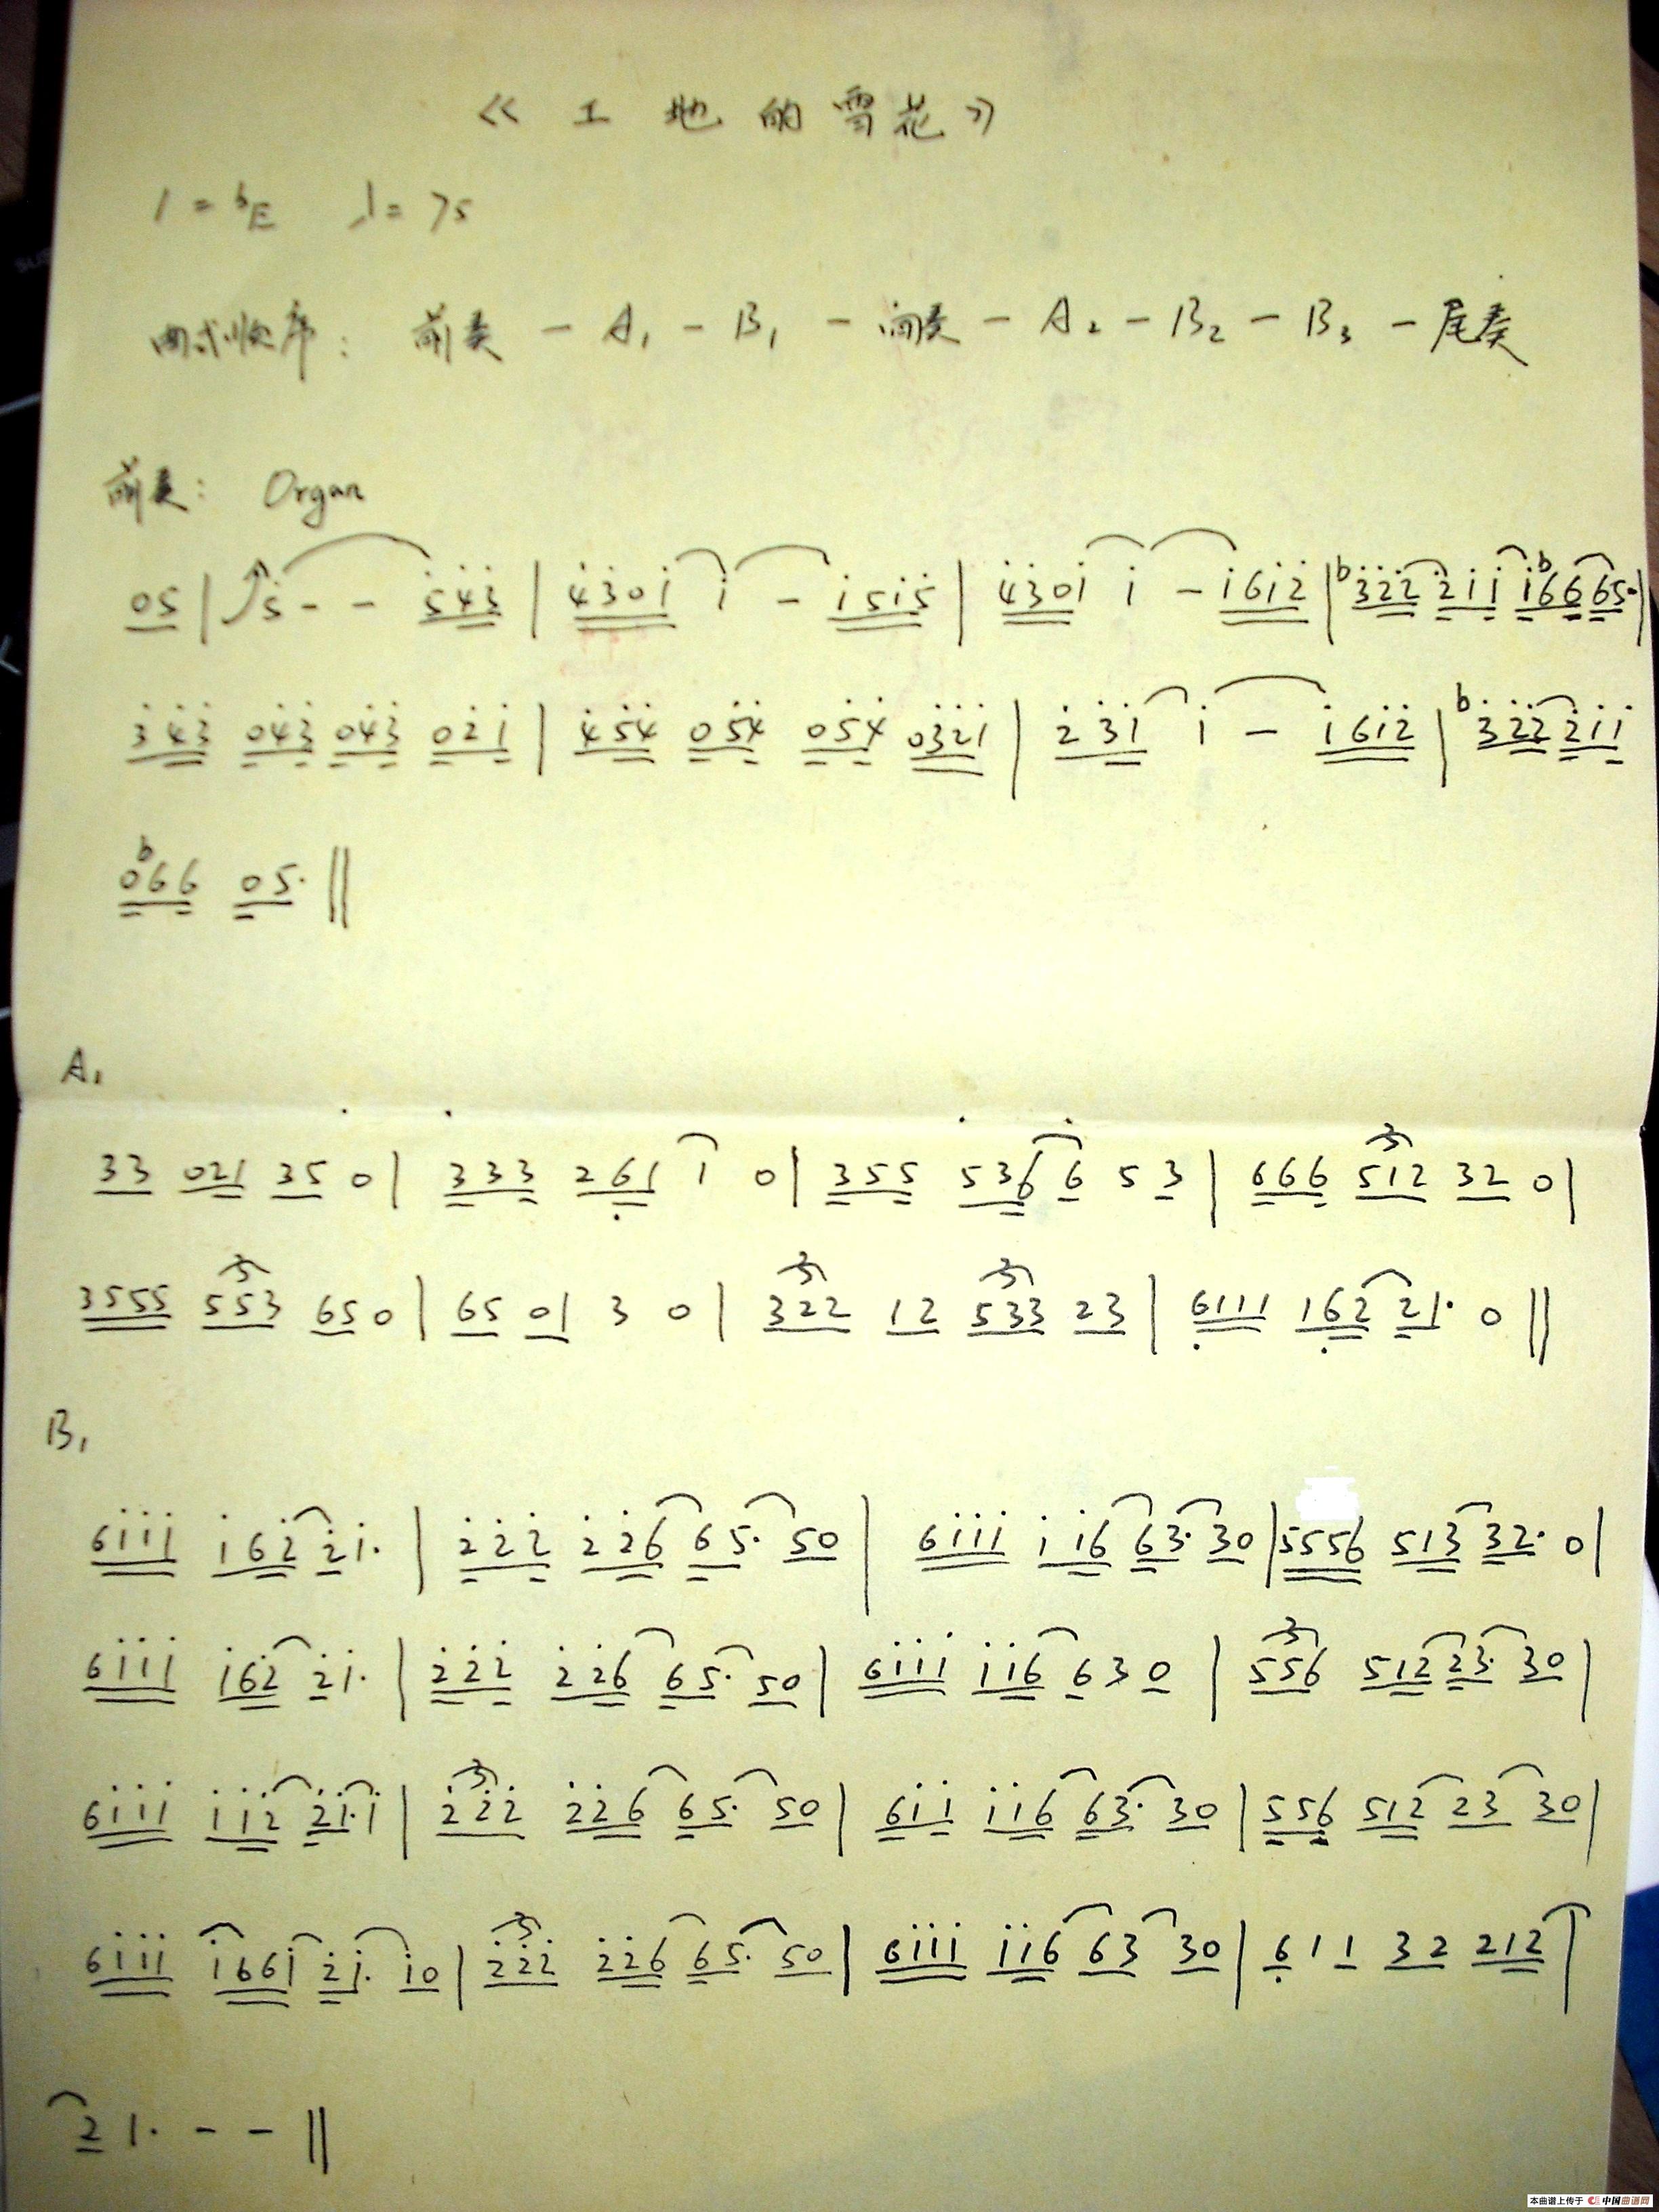 《工地的雪花》
1=ᵇE ♩=75
曲式顺序: 前奏 - A₁ - B₁ - 间奏 - A₂ - B₂ - B₃ - 尾奏
前奏: Organ
05 | 5̇ - - 5̇4̇3̇ | 4̇3̇01̇ 1̇ - 1̇51̇5̇ | 4̇3̇01̇ 1̇ - 1̇61̇2̇ | ᵇ3̇2̇2̇ 2̇1̇1̇ 1̇ᵇ66 65· |
3̇4̇3̇ 04̇3̇ 04̇3̇ 02̇1̇ | 4̇5̇4̇ 05̇4̇ 05̇4̇ 03̇2̇1̇ | 2̇3̇1̇ 1̇ - 1̇61̇2̇ | ᵇ3̇2̇2̇ 2̇1̇1̇
0ᵇ66 05· ‖
A₁
33 021 35 0 | 333 26̣1 1 0 | 355 536 6 5 3 | 666 512 32 0 |
3555 553 65 0 | 65 01 3 0 | 322 12 533 23 | 6̣111 16̣2 21· 0 ‖
B₁
61̇1̇1̇ 1̇62̇ 2̇1̇· | 2̇2̇2̇ 2̇2̇6 65· 50 | 61̇1̇1̇ 1̇1̇6 63· 30 | 5556 513 32· 0 |
61̇1̇1̇ 1̇62̇ 2̇1̇· | 2̇2̇2̇ 2̇2̇6 65· 50 | 61̇1̇1̇ 1̇1̇6 6 3 0 | 556 512 23· 30 |
61̇1̇1̇ 1̇1̇2̇ 2̇1̇·1̇ | 2̇2̇2̇ 2̇2̇6 65· 50 | 61̇1̇ 1̇1̇6 63· 30 | 556 512 23 30 |
61̇1̇1̇ 1̇661̇ 2̇1̇· 1̇0 | 2̇2̇2̇ 2̇2̇6 65· 50 | 61̇1̇1̇ 1̇1̇6 63 30 | 6̣ 1 1 32 212 |
2 1· - - ‖
本曲谱上传于 中国曲谱网